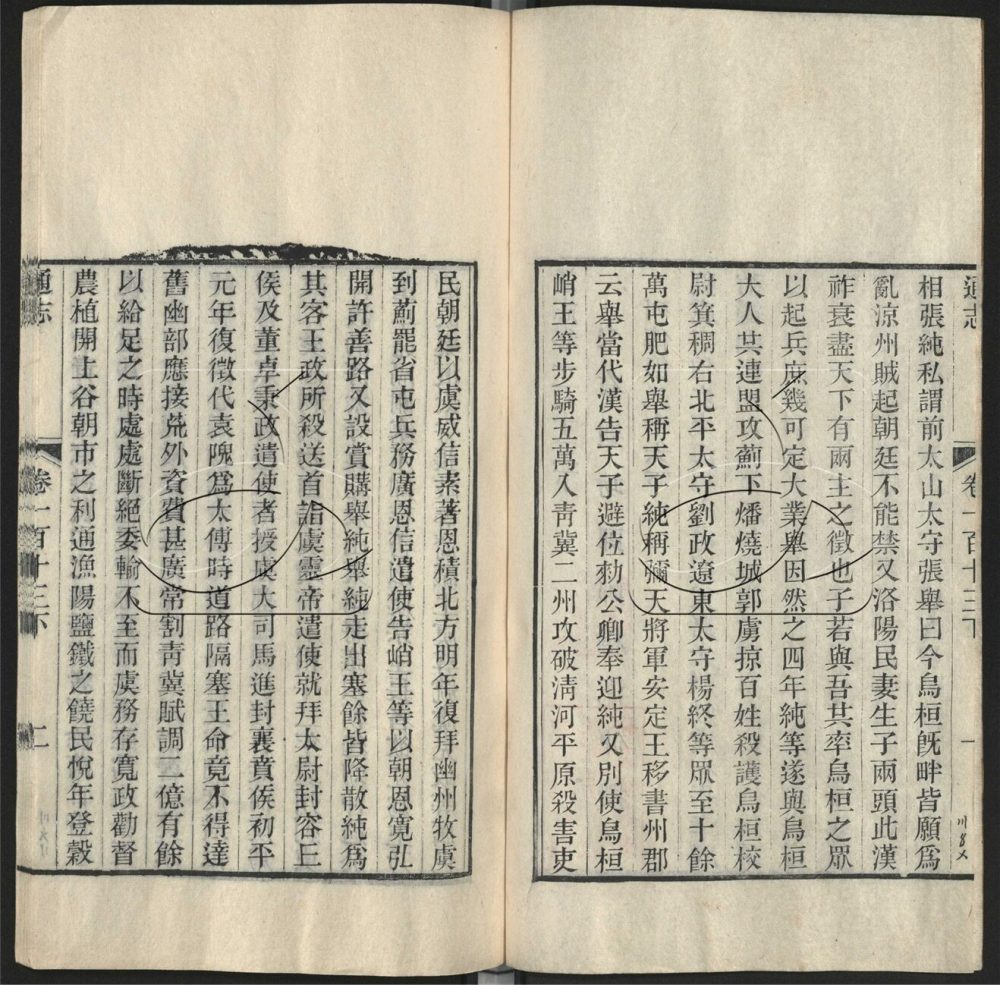 通志
卷一百十三下
一
相張純私謂前太山太守張舉曰今烏桓旣畔皆願爲
亂涼州賊起朝廷不能禁又洛陽民妻生子兩頭此漢
祚衰盡天下有兩主之徵也子若與吾共率烏桓之眾
以起兵庶幾可定大業舉因然之四年純等遂與烏桓
大人共連盟攻薊下燔燒城郭虜掠百姓殺護烏桓校
尉箕稠右北平太守劉政遼東太守楊終等眾至十餘
萬屯肥如舉稱天子純稱彌天將軍安定王移書州郡
云舉當代漢告天子避位勑公卿奉迎純又別使烏桓
峭王等步騎五萬入青冀二州攻破淸河平原殺害吏
民朝廷以虞威信素著恩積北方明年復拜幽州牧虞
到薊罷省屯兵務廣恩信遣使告峭王等以朝恩寬弘
開許善路又設賞購舉純舉純走出塞餘皆降散純爲
其客王政所殺送首詣虞靈帝遣使就拜太尉封容丘
侯及董卓秉政遣使者授虞大司馬進封襄賁侯初平
元年復徵代袁隗爲太傅時道路隔塞王命竟不得達
舊幽部應接荒外資費甚廣常割青冀賦調二億有餘
以給足之時處處斷絕委輸不至而虞務存寬政勸督
農植開上谷朝市之利通漁陽鹽鐵之饒民悅年登穀
通志
卷一百十三下
二